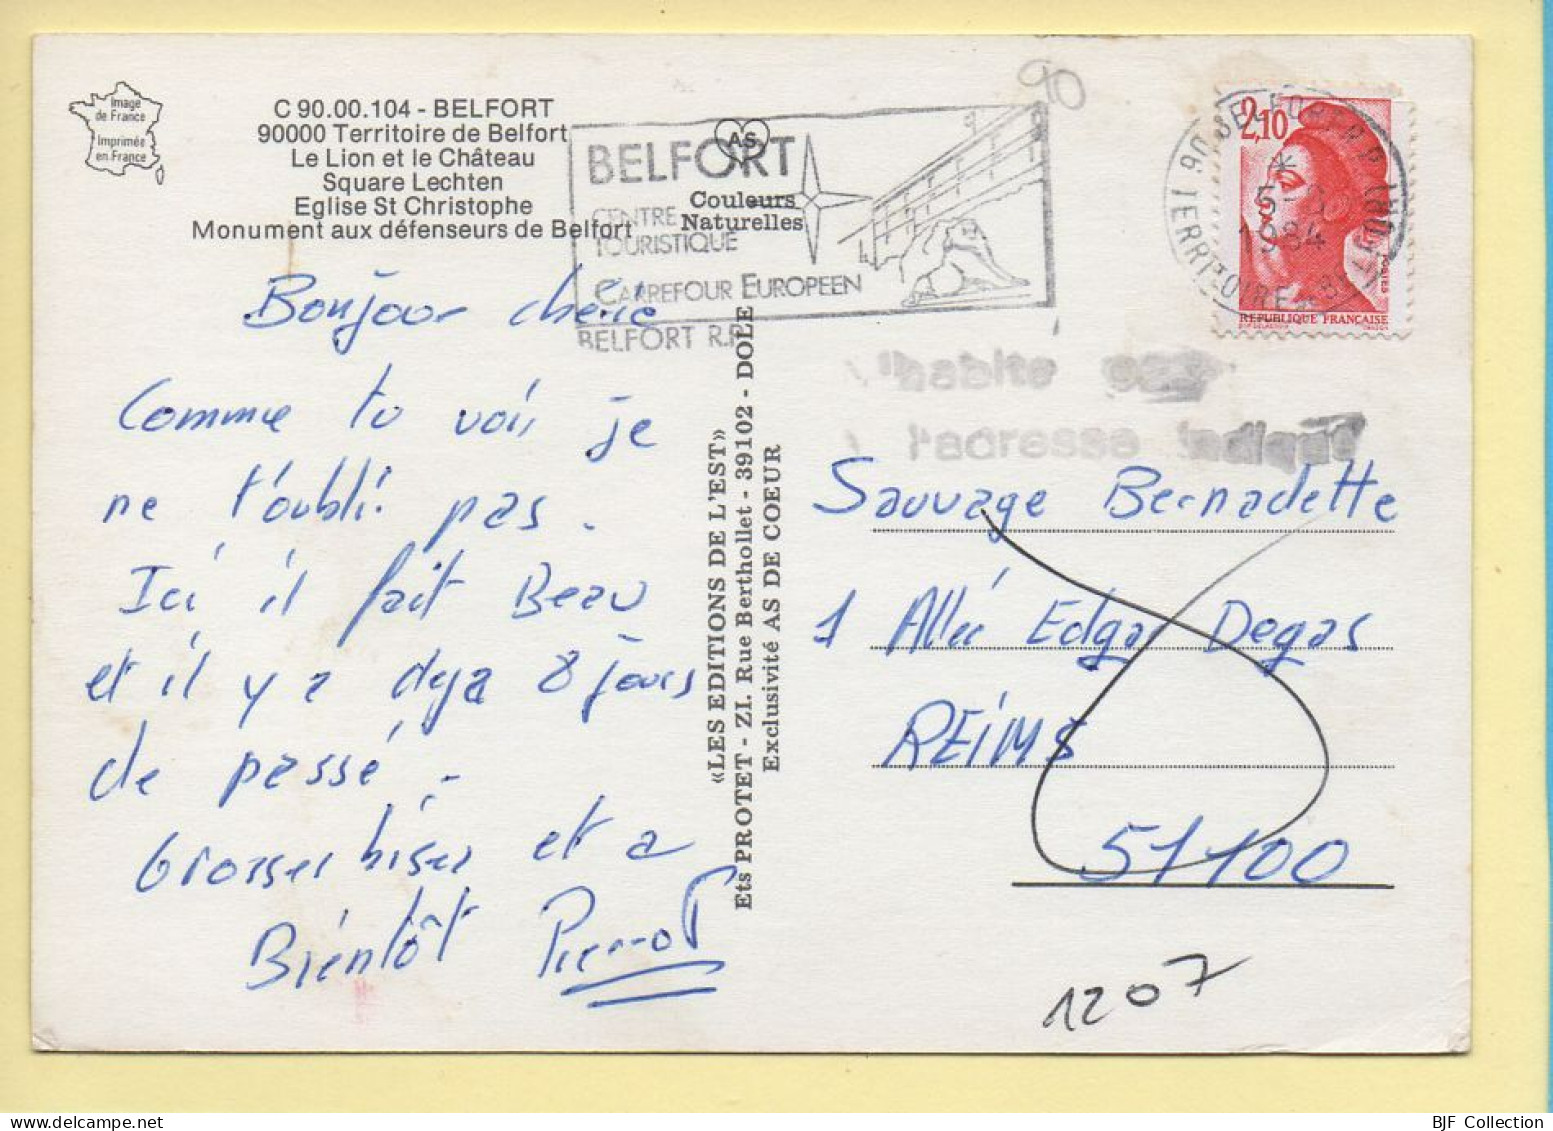 Image
de France
Imprimée
en France
C 90.00.104 - BELFORT
90000 Territoire de Belfort
Le Lion et le Château
Square Lechten
Eglise St Christophe
Monument aux défenseurs de Belfort
AS
Couleurs
Naturelles
BELFORT
CENTRE
TOURISTIQUE
CARREFOUR EUROPEEN
BELFORT R.P.
90
2,10
90 BELFORT R.P.
5
1984
TERRITOIRE DE BELFORT
POSTES
REPUBLIQUE FRANÇAISE
Bonjour chérie
Comme tu vois je
ne t'oubli pas.
Ici il fait Beau
et il y a deja 8 jours
de passé.
Grosses bises et a
Bientôt Pierrot
«LES EDITIONS DE L'EST»
Ets PROTET - ZI. Rue Berthollet - 39102 - DOLE
Exclusivité AS DE COEUR
N'habite pas
l'adresse indiquée
Sauvage Bernadette
1 Allée Edgar Degas
REiMS
51100
1207
BJF Collection